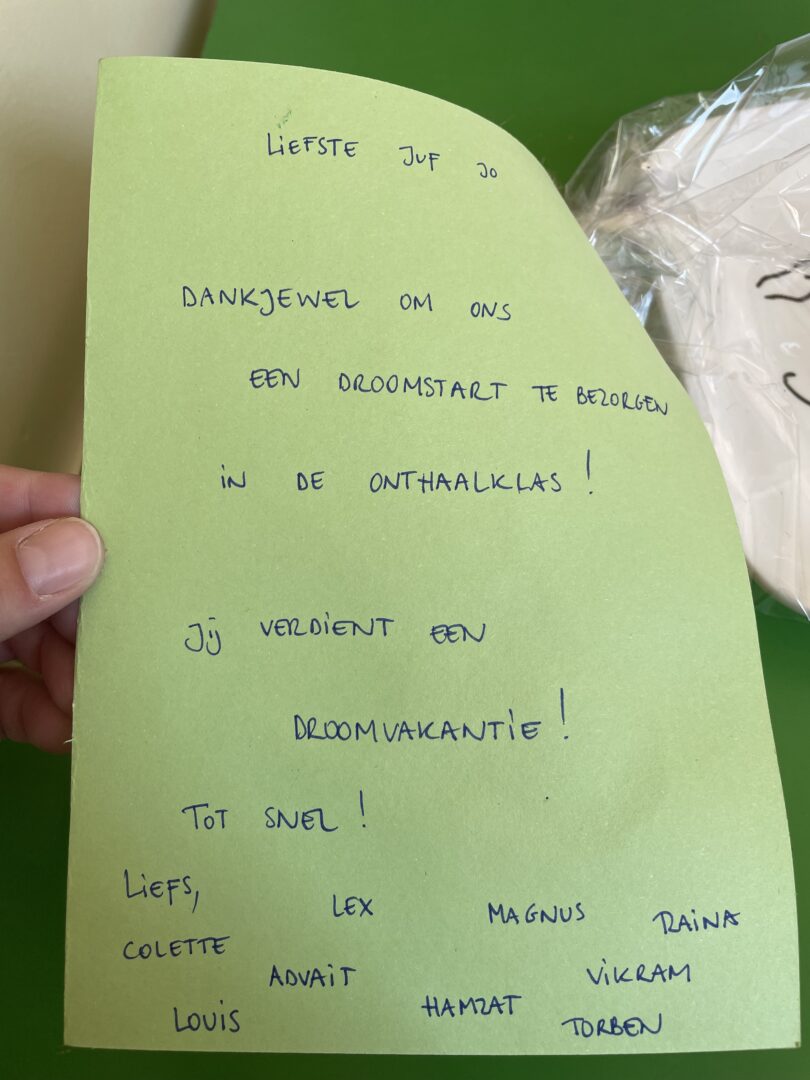 LIEFSTE JUF JO
DANKJEWEL OM ONS
EEN DROOMSTART TE BEZORGEN
IN DE ONTHAALKLAS!
JIJ VERDIENT EEN
DROOMVAKANTIE!
TOT SNEL!
LIEFS, LEX MAGNUS RAINA
COLETTE ADVAIT VIKRAM
LOUIS HAMZAT TORBEN